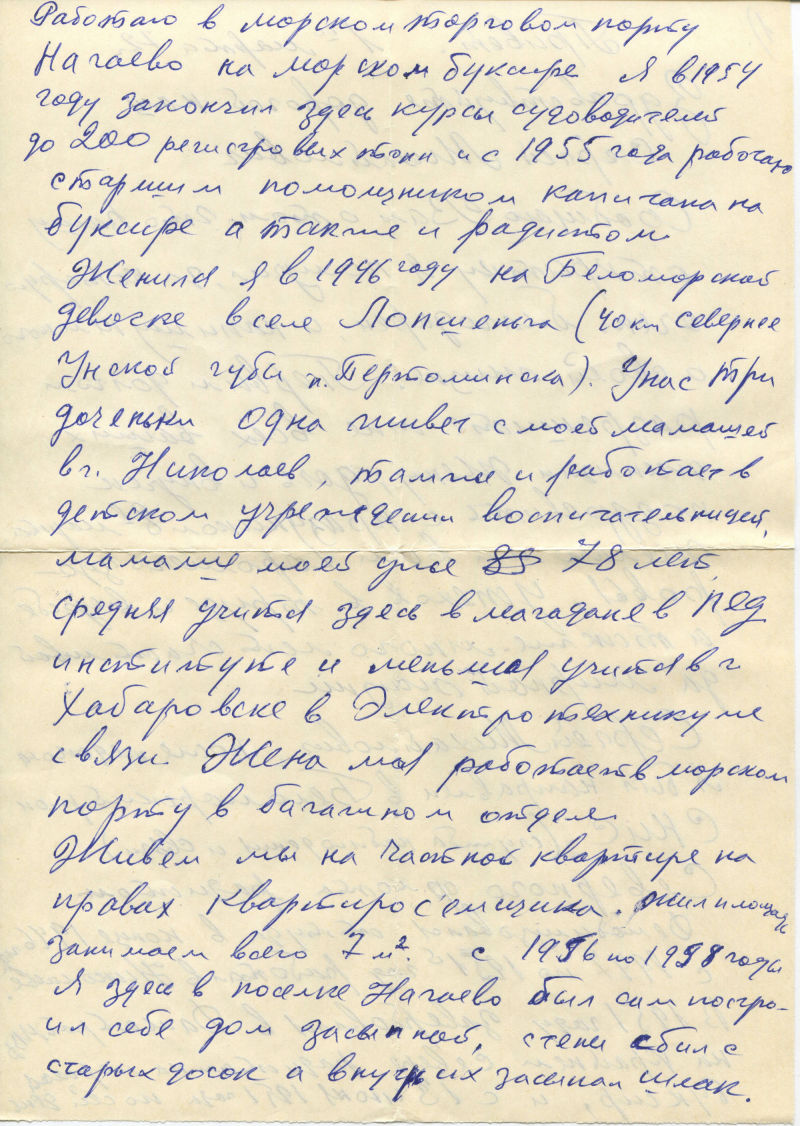 Работаю в морском торговом порту
Нагаево на морском буксире Я в 1954
году закончил здесь курсы судоводителей
до 200 регистровых тонн и с 1955 года работаю
старшим помощником капитана на
буксире а также и радистом.
Женился я в 1946 году на Беломорской
девочке в селе Лопшеньга (40 км севернее
Унской губы п. Пертоминска). У нас три
доченьки одна живет с моей мамашей
в г. Николаев, там же и работает в
детском учреждении воспитательницей,
мамаше моей уже 78 лет,
средняя учится здесь в Магадане в пед
институте и меньшая учится в г
Хабаровске в Электротехникуме
связи. Жена моя работает в морском
порту в багажном отделе
Живем мы на частной квартире на
правах квартиросъемщика. Жилплощадь
занимаем всего 7 м². с 1956 по 1958 годы
Я здесь в поселке Нагаево был сам постро-
ил себе дом засыпной, стены сбил с
старых досок а внутрь их засыпал шлак.